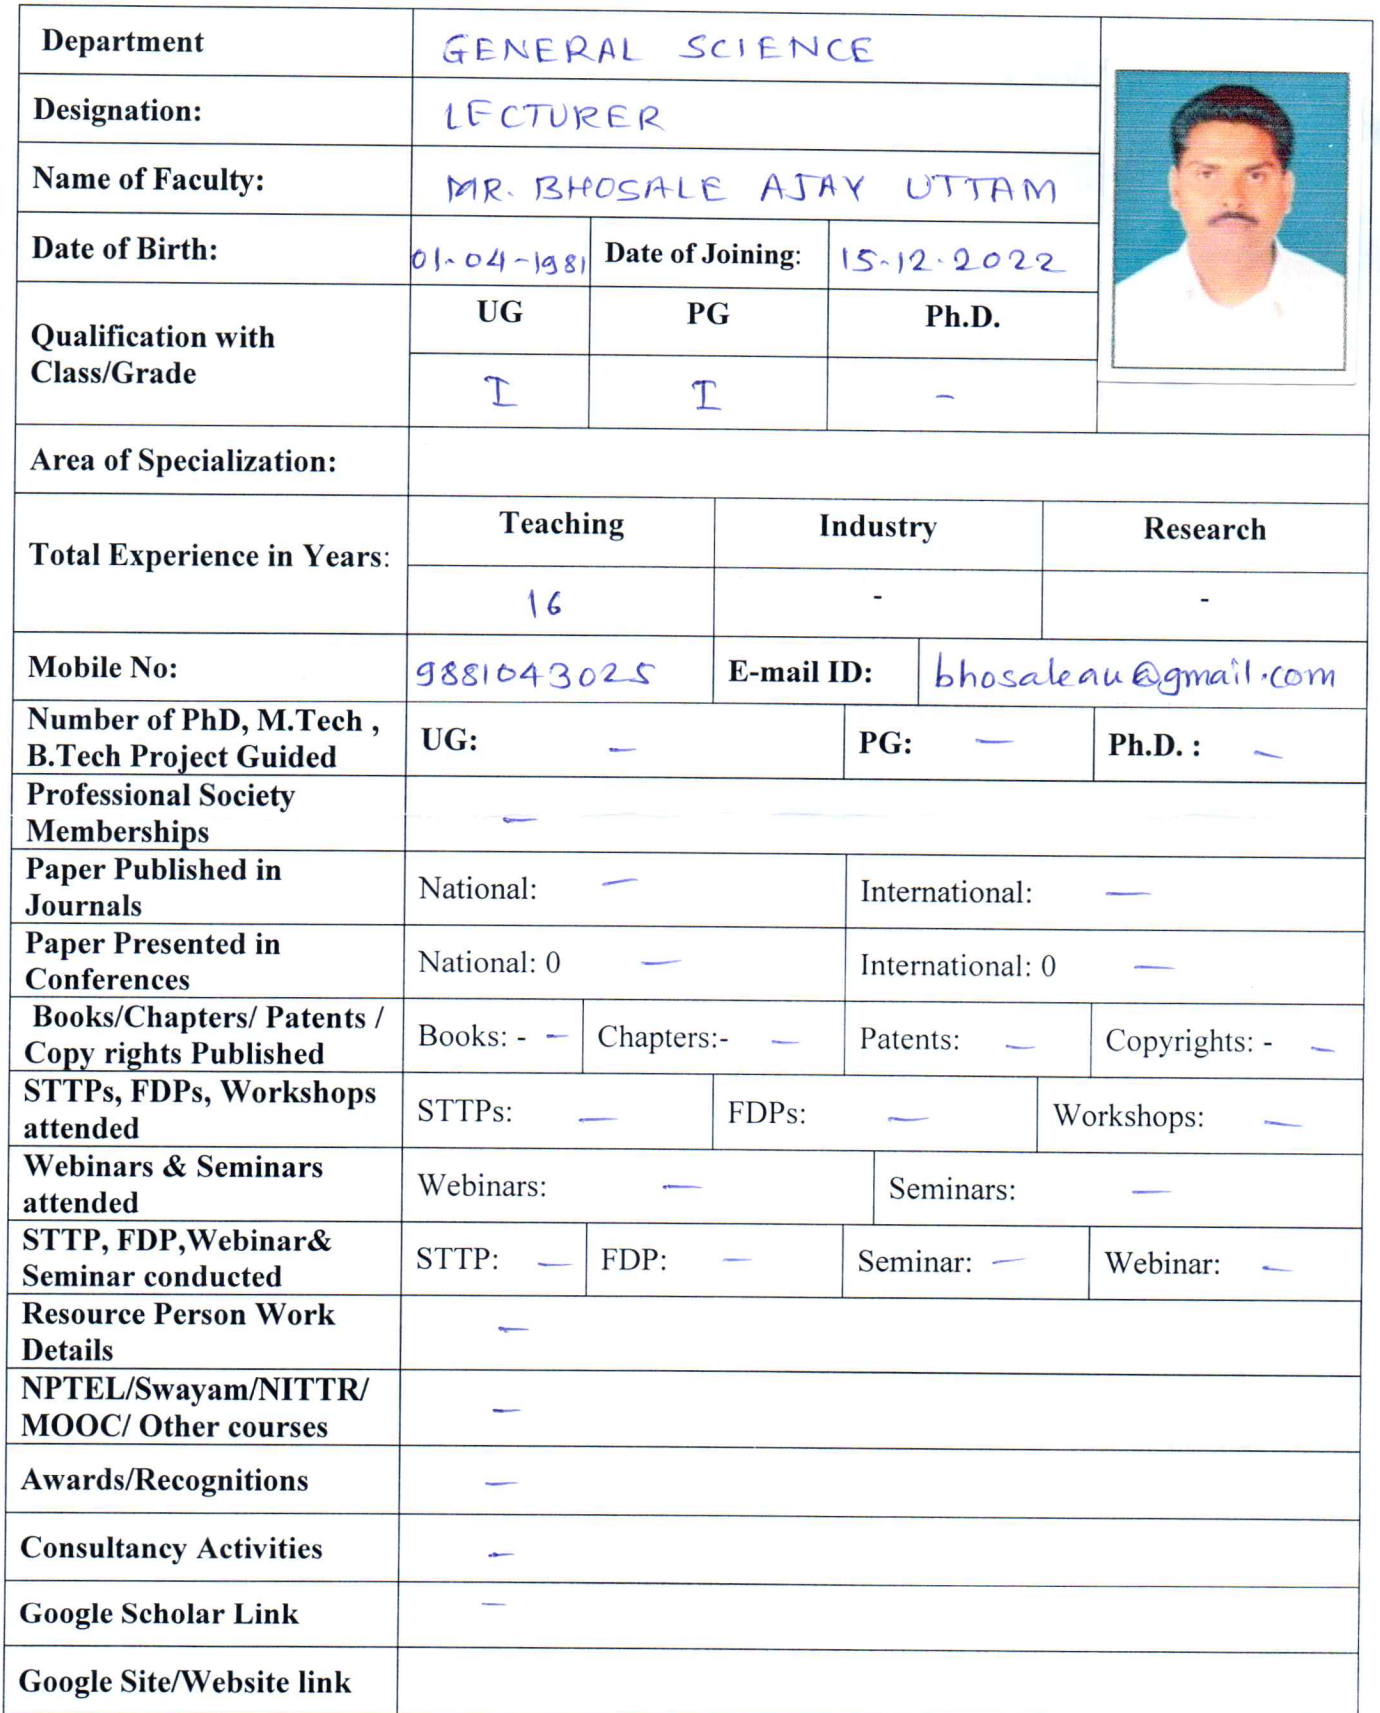 Department GENERAL SCIENCE
Designation: LECTURER
Name of Faculty: MR. BHOSALE AJAY UTTAM
Date of Birth: 01-04-1981 Date of Joining: 15-12-2022
Qualification with
Class/Grade
UG PG Ph.D.
I I -
Area of Specialization:
Total Experience in Years:
Teaching Industry Research
16 - -
Mobile No: 9881043025 E-mail ID: bhosaleau@gmail.com
Number of PhD, M.Tech ,
B.Tech Project Guided
UG: - PG: - Ph.D. : -
Professional Society
Memberships
-
Paper Published in
Journals
National: - International: -
Paper Presented in
Conferences
National: 0 - International: 0 -
Books/Chapters/ Patents /
Copy rights Published
Books: - - Chapters:- - Patents: - Copyrights: - -
STTPs, FDPs, Workshops
attended
STTPs: - FDPs: - Workshops: -
Webinars & Seminars
attended
Webinars: - Seminars: -
STTP, FDP,Webinar&
Seminar conducted
STTP: - FDP: - Seminar: - Webinar: -
Resource Person Work
Details
-
NPTEL/Swayam/NITTR/
MOOC/ Other courses
-
Awards/Recognitions -
Consultancy Activities -
Google Scholar Link -
Google Site/Website link